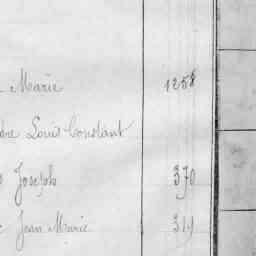 Marie 1258
Louis Constant
Joseph 370
Jean Marie 319